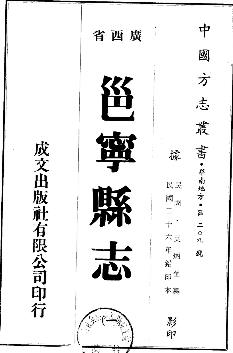 中國方志叢書·華南地方·第二〇九號
據民國
民國二十六年鉛印本
影印
廣西省
邕寧縣志
成文出版社有限公司印行